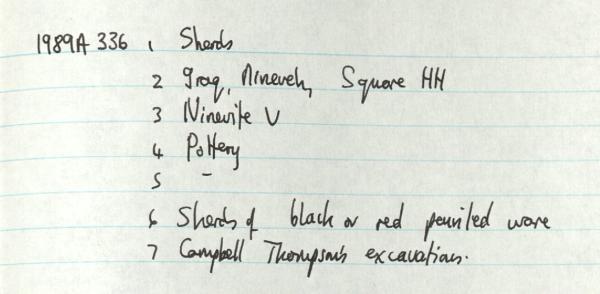 1989A 336 1 Sherds
2 Iraq, Nineveh, Square HH
3 Ninevite V
4 Pottery
5 -
6 Sherds of black or red painted ware
7 Campbell Thompson's excavations.